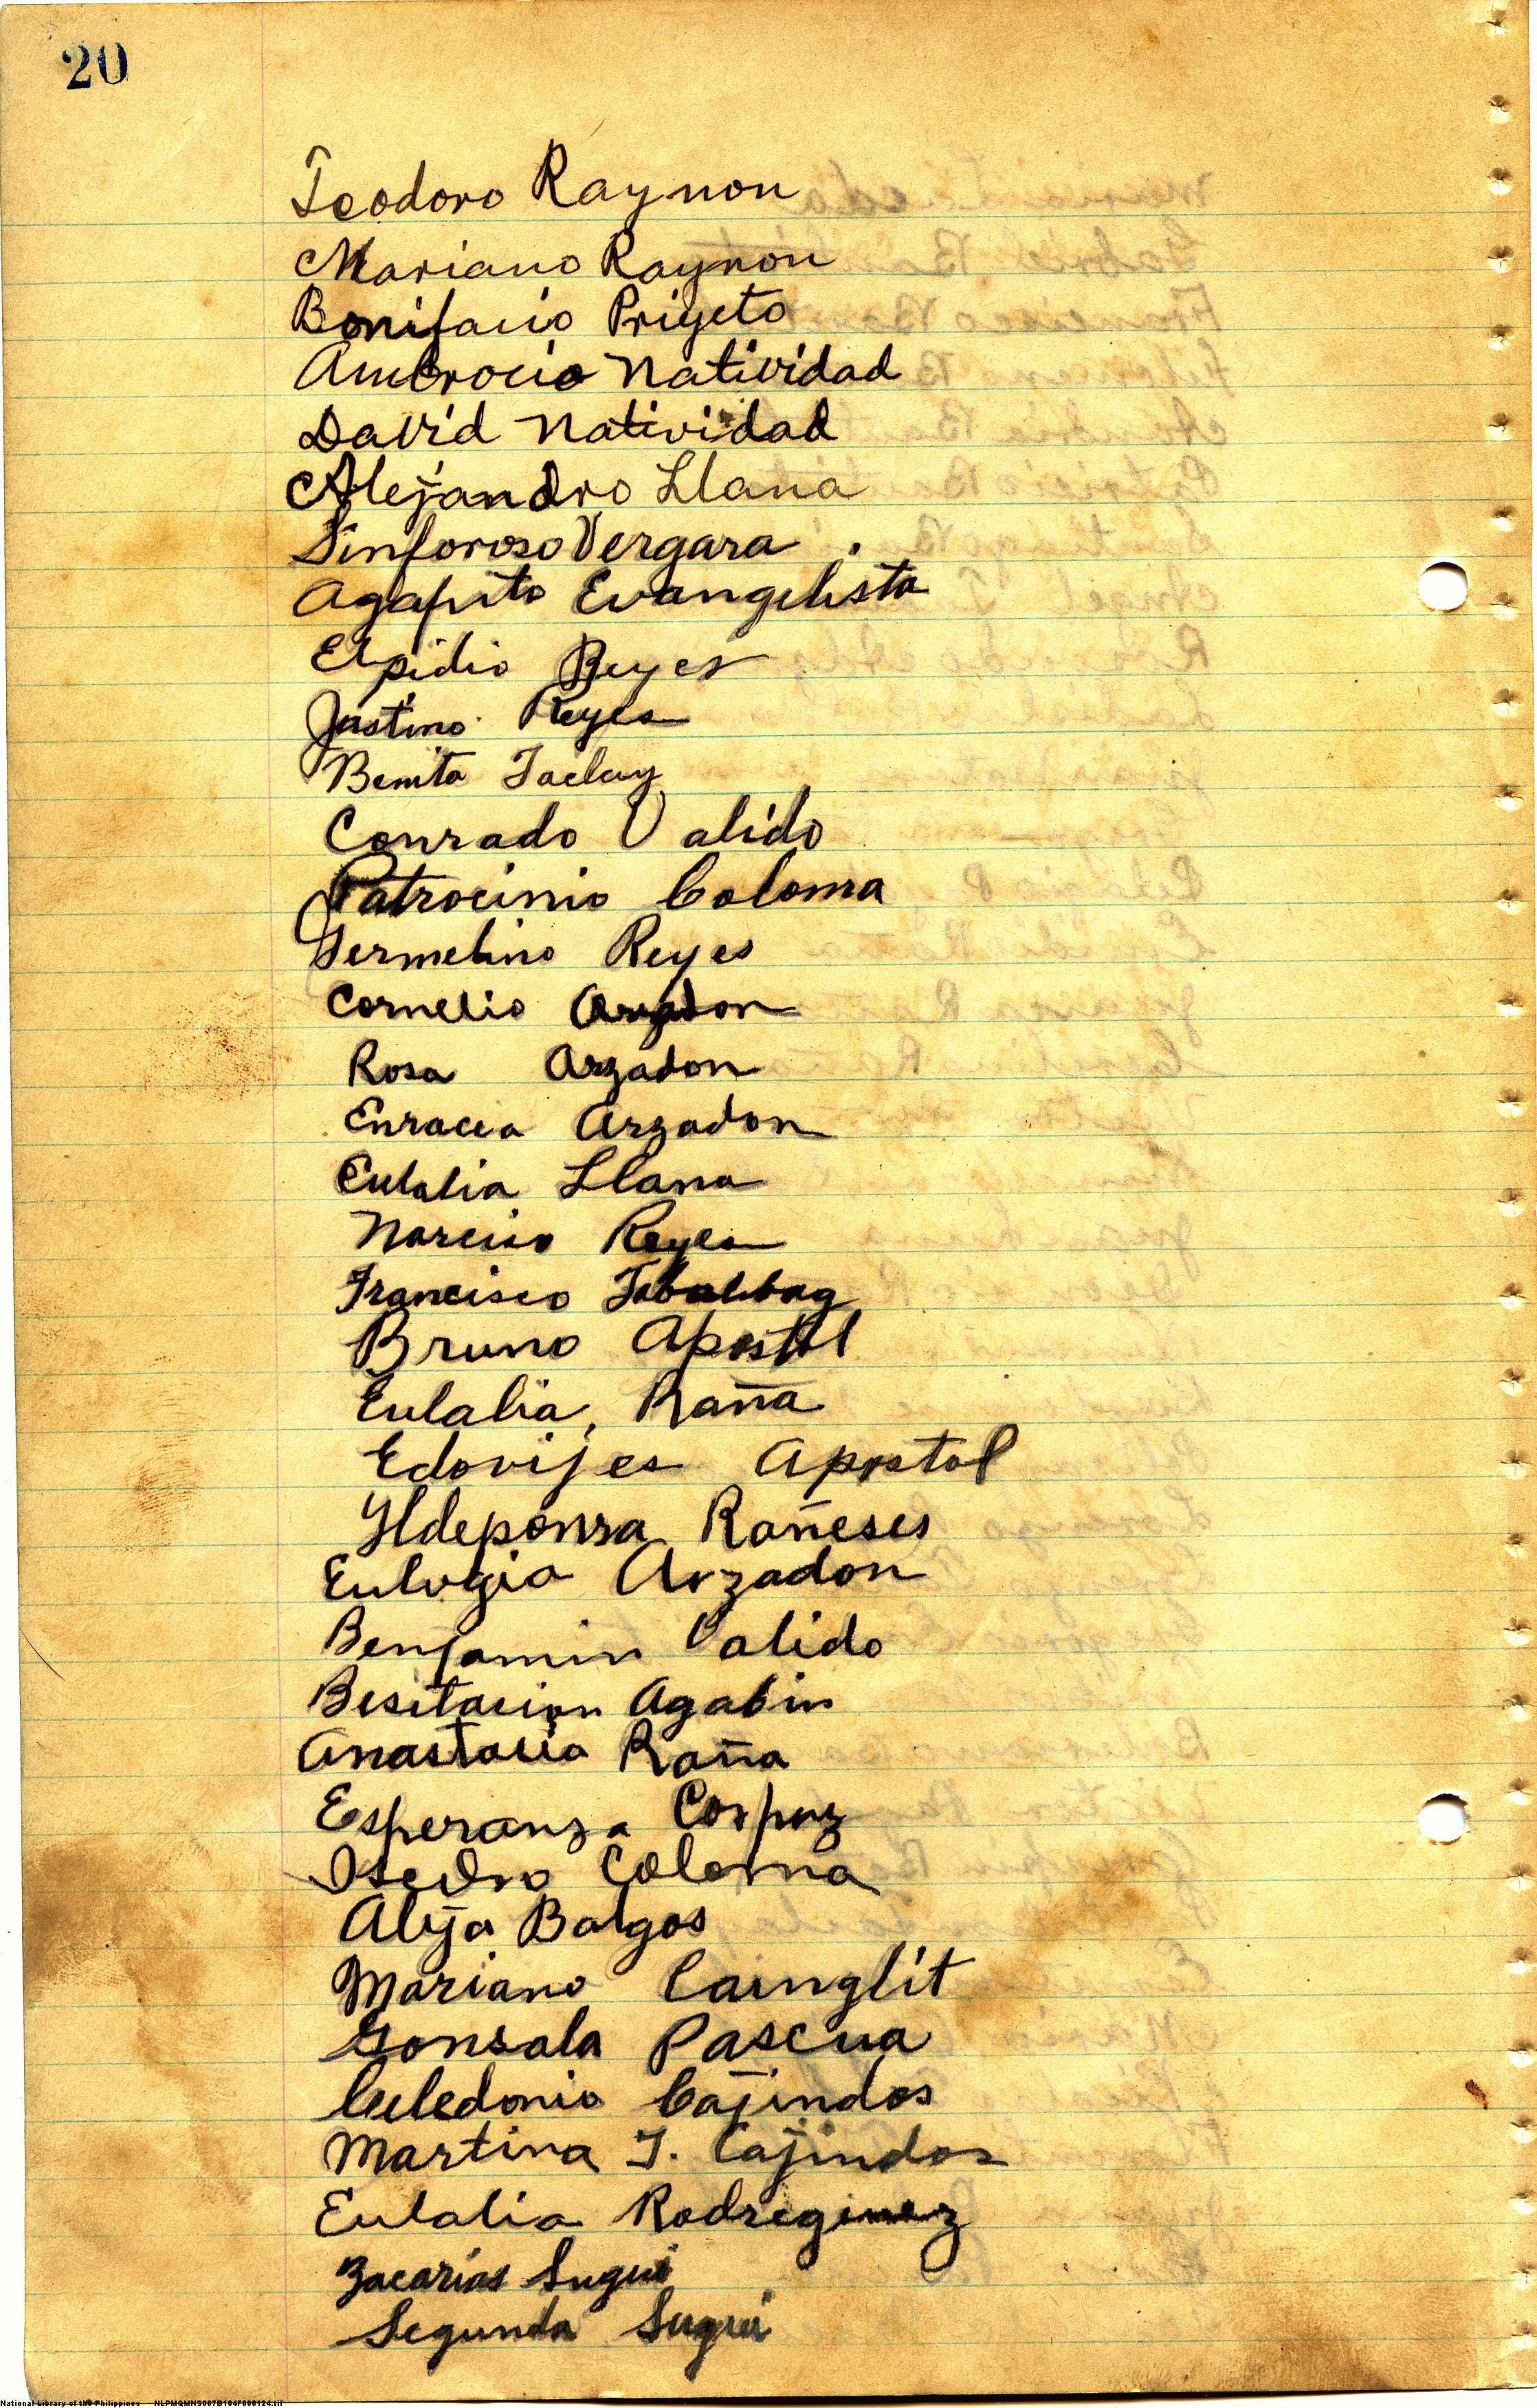 20
Teodoro Raynon
Mariano Raynon
Bonifacio Prigeto
Ambrocio Natividad
David Natividad
Alejandro Llana
Sinforoso Vergara
Agapito Evangelista
Elpidio Reyes
Justino Reyes
Benita Taclay
Conrado Valido
Patrocinio Coloma
Fermelino Reyes
Cornelio Arzadon
Rosa Arzadon
Enracia Arzadon
Eulalia Llana
Narciso Reyes
Francisco Tabalbag
Bruno Apostol
Eulalia, Raña
Edovijes Apostol
Yldeponsa Rañeses
Eulogia Arzadon
Benjamin Valido
Besitacion Agabin
Anastacia Raña
Esperansa Corpuz
Isedro Coloma
Aleja Balgos
Mariano Cainglit
Gonsala Pascua
Celedonio Cajindos
Martina T. Cajindos
Eulalia
Zacarias Sugui
Segunda Sugui
National Library of the Philippines NLPMQMNS007B104F000124.tif